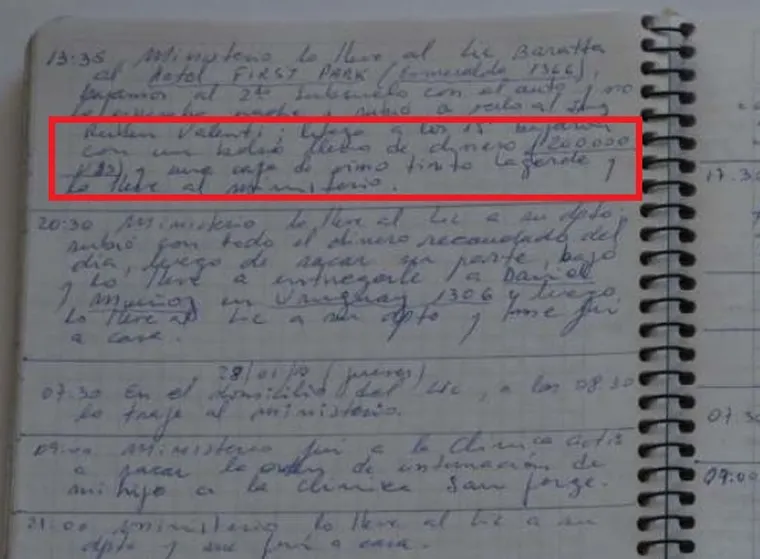 13:35 Ministerio lo lleve al Lic Baratta
al Hotel FIRST PARK (Esmeralda 1366),
bajamos al 2do subsuelo con el auto y no
lo noche y subió a verlo al Ing
Ruben Valenti; luego a los 15' bajaron
con un bolso lleno de dinero (1.200.000
U$S) y una caja de vino tinto Lagarde y
lo lleve al ministerio.
20:30 Ministerio lo lleve al Lic a su dpto,
subió con todo el dinero recaudado del
día, luego de sacar su parte, bajo
y lo lleve a entregarle a Daniel
Muñoz en Uruguay 1306 y luego
lo lleve al Lic a su dpto y me fui
a casa.
28/01/10 (jueves)
07:30 En el domicilio del Lic, a las 08:30
lo traje al ministerio.
09:00 Ministerio fui a la Clinica
a sacar la orden de internación de
mi hijo a la clinica San Jorge.
21:00 Ministerio lo lleve al Lic a su
dpto y me fui a casa.
17:30
07:30
09:00